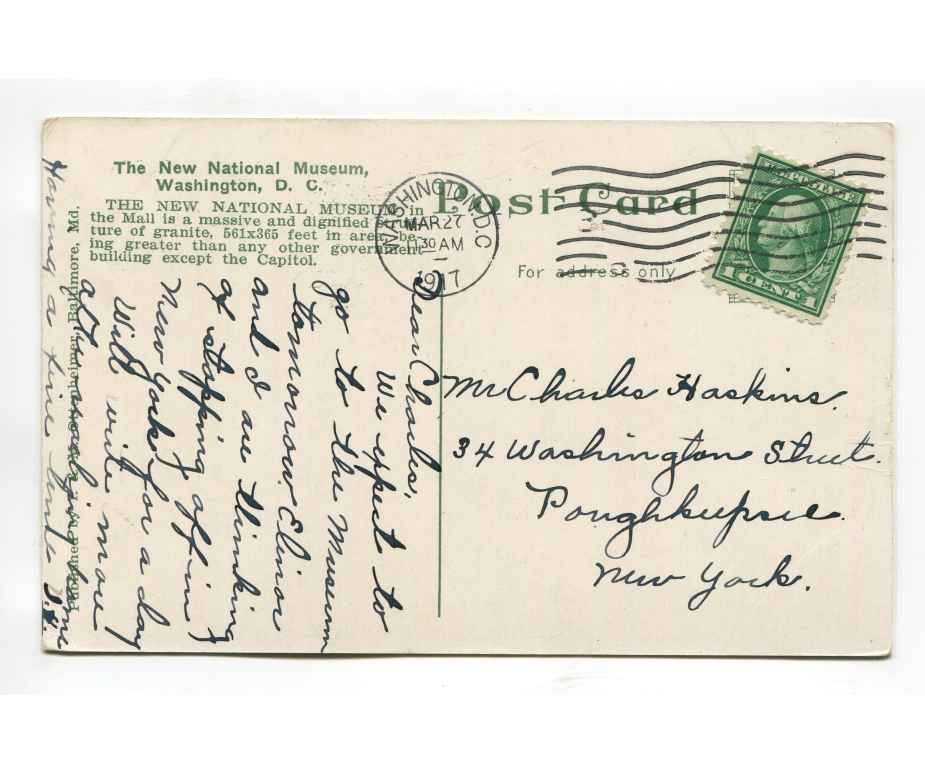 The New National Museum,
Washington, D. C.
THE NEW NATIONAL MUSEUM in
the Mall is a massive and dignified struc-
ture of granite, 561x365 feet in area, be-
ing greater than any other government
building except the Capitol.
WASHINGTON, D.C.
MAR 27
30 AM
1917
Post Card
For address only
1 CENT 1
Published by I. & M. Ottenheimer, Baltimore, Md.
Dear Charles,
We expect to
go to the Museum
tomorrow. Elinor
and I are thinking
of stopping off in
New York for a day
Will write more
after reaching home
Having a fine time
Mr Charles Haskins.
34 Washington Street.
Poughkeepsie.
New York.